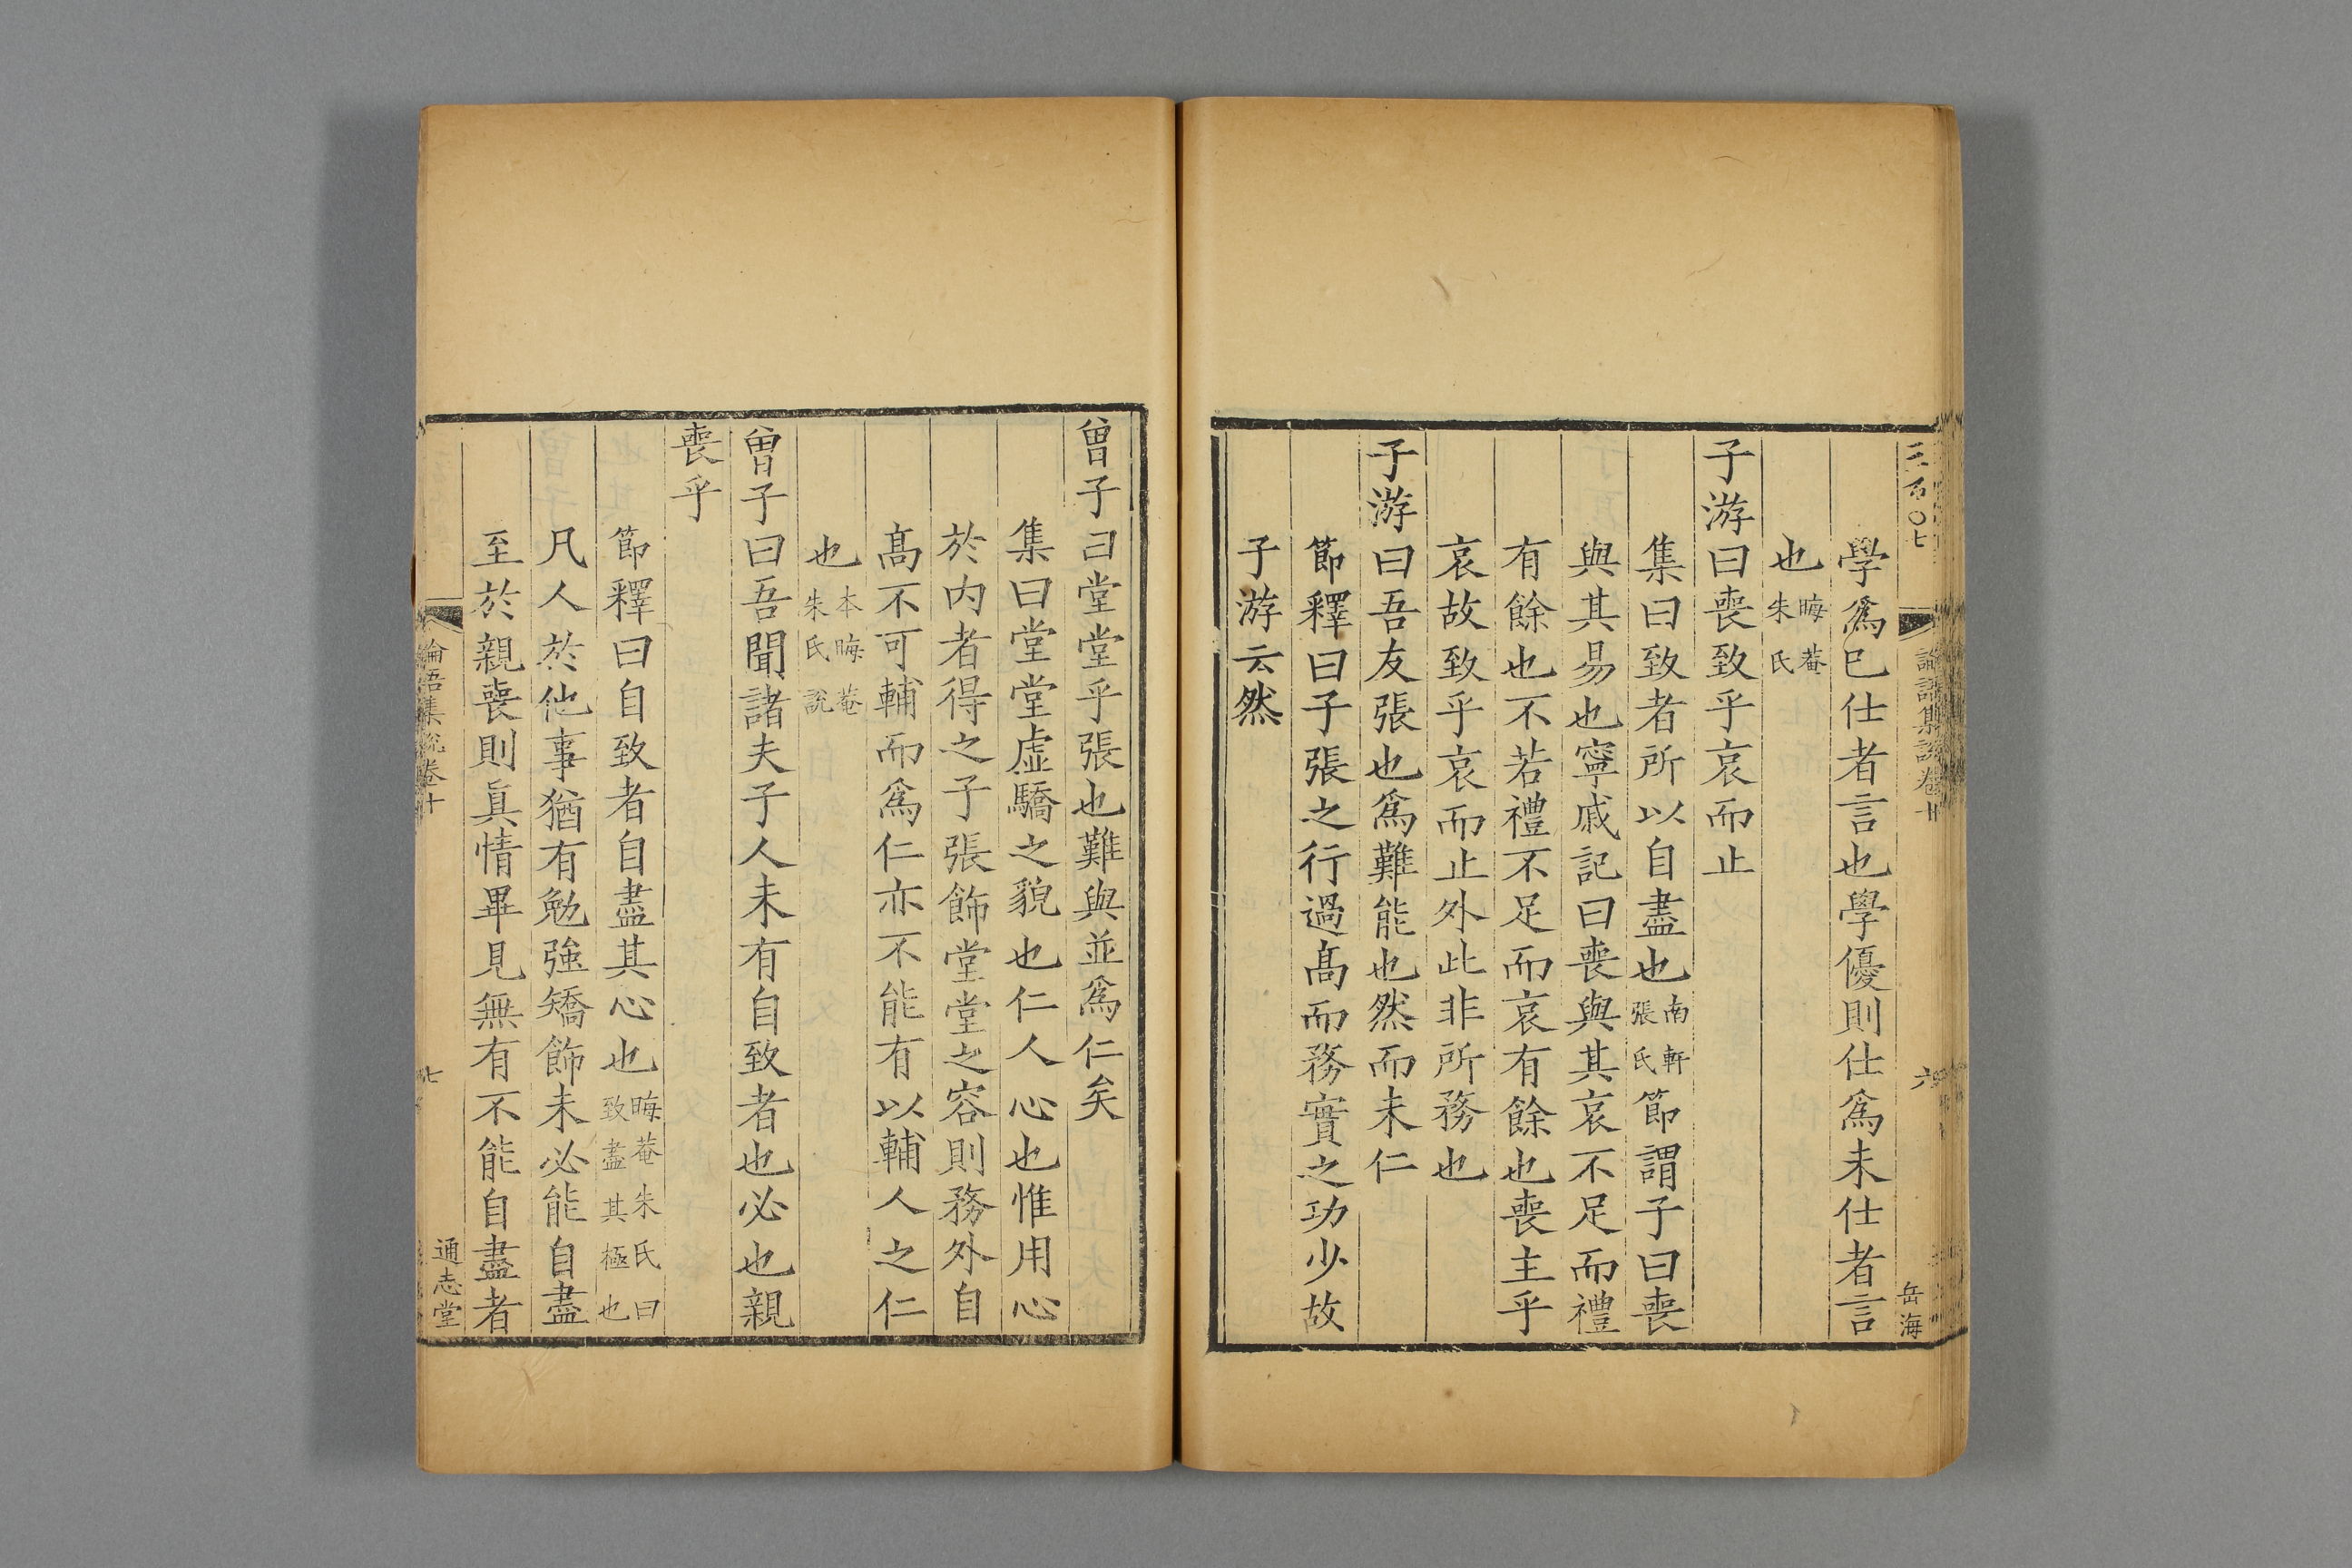 三百〇七
論語集說卷十
六
岳海
學爲已仕者言也學優則仕爲未仕者言
也晦菴朱氏
子游曰喪致乎哀而止
集曰致者所以自盡也南軒張氏節謂子曰喪
與其易也寧戚記曰喪與其哀不足而禮
有餘也不若禮不足而哀有餘也喪主乎
哀故致乎哀而止外此非所務也
子游曰吾友張也爲難能也然而未仁
節釋曰子張之行過高而務實之功少故
子游云然
曾子曰堂堂乎張也難與並爲仁矣
集曰堂堂虛驕之貌也仁人心也惟用心
於内者得之子張飾堂堂之容則務外自
高不可輔而爲仁亦不能有以輔人之仁
也本晦菴朱氏說
曾子曰吾聞諸夫子人未有自致者也必也親
喪乎
節釋曰自致者自盡其心也晦菴朱氏曰致盡其極也
凡人於他事猶有勉強矯飾未必能自盡
至於親喪則真情畢見無有不能自盡者
論語集說卷十
七
通志堂